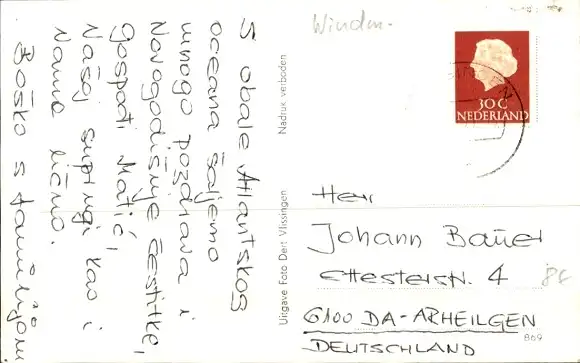 S obale Atlantskog
oceana šaljemo
mnogo pozdrava i
Novogodišnje čestitke,
Gospođi Matić,
Našoj supruzi kao i
Vama lično.
Boško s familijom
Uitgave Foto Dert Vlissingen
Nadruk verboden
30 C
NEDERLAND
Herr
Johann Bauer
Ettesterstr. 4
6100 DA-ARHEILGEN
DEUTSCHLAND
869